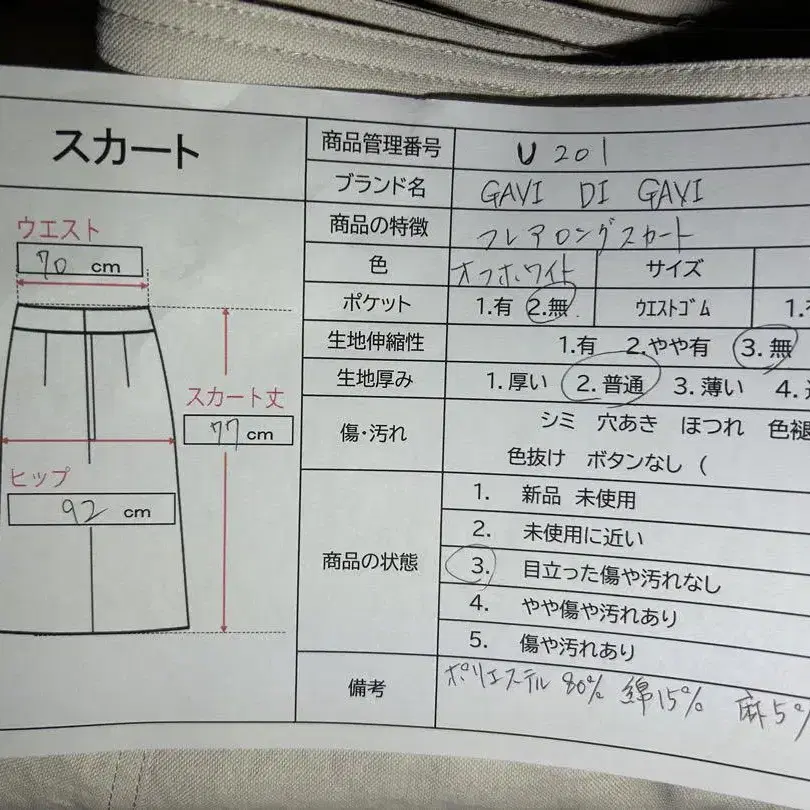 スカート
ウエスト
70 cm
スカート丈
77 cm
ヒップ
92 cm
商品管理番号 U 201
ブランド名 GAVI DI GAVI
商品の特徴 フレアロングスカート
色 オフホワイト サイズ
ポケット 1.有 2.無 ｳｴｽﾄｺﾞﾑ 1.
生地伸縮性 1.有 2.やや有 3.無
生地厚み 1.厚い 2.普通 3.薄い 4.
傷・汚れ シミ 穴あき ほつれ 色褪
色抜け ボタンなし (
商品の状態
1. 新品 未使用
2. 未使用に近い
3. 目立った傷や汚れなし
4. やや傷や汚れあり
5. 傷や汚れあり
備考 ポリエステル 80% 綿15% 麻5%